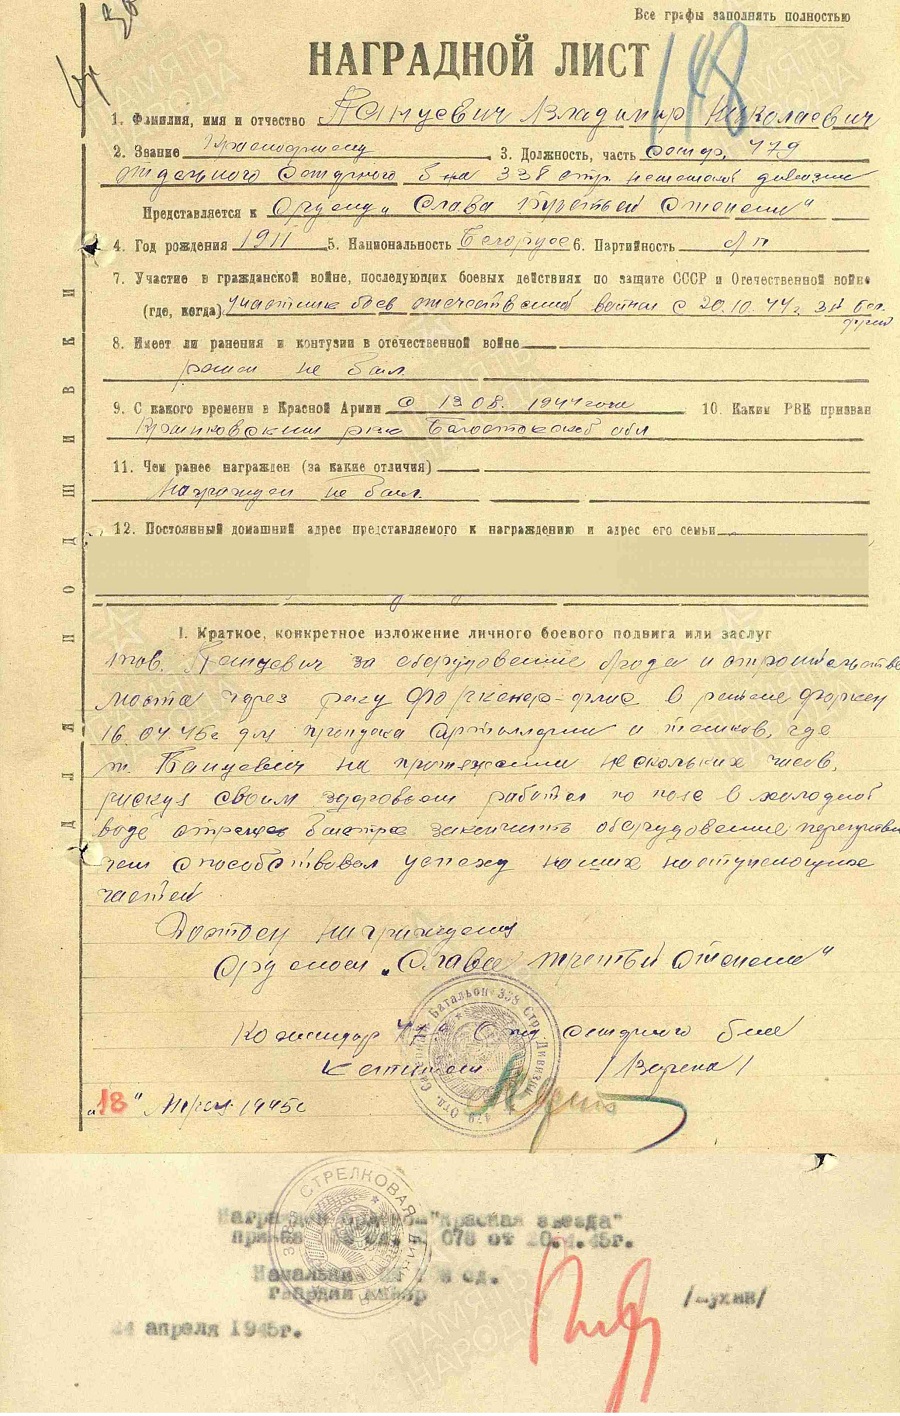 Все графы заполнять полностью
НАГРАДНОЙ ЛИСТ
148
1. Фамилия, имя и отчество Панцевич Владимир Николаевич
2. Звание Красноармеец 3. Должность, часть 479
отдельного саперного б-на 338 стр. дивизии
Представляется к Ордену „Слава третьей степени"
4. Год рождения 1911 5. Национальность Белорус 6. Партийность б/п
7. Участие в гражданской войне, последующих боевых действиях по защите СССР и Отечественной войне
(где, когда) участник боев отечественной войны с 20.10.44г. 3й Бел.
фронт
8. Имеет ли ранения и контузии в отечественной войне
ранен не был
9. С какого времени в Красной Армии с 13.08.1944 года 10. Каким РВК призван
рвк Белостокской обл
11. Чем ранее награжден (за какие отличия)
награжден не был
12. Постоянный домашний адрес представляемого к награждению и адрес его семьи
ДЛЯ ПОДШИВКИ
I. Краткое, конкретное изложение личного боевого подвига или заслуг
тов. Панцевич за оборудование брода и строительство
моста через реку в районе
16.04.45г для пропуска артиллерии и танков, где
т. Панцевич на протяжении нескольких часов,
рискуя своим здоровьем работал по пояс в холодной
воде быстрее закончить оборудование переправы
чем способствовал успеху наших наступающих
частей.
Достоин награждения
Орденом „Слава третьей степени"
Командир 479 Отд. саперного б-на
Капитан
479 Отд. Саперный Батальон 338 Стр. Дивизии
„18" 1945г
СТРЕЛКОВАЯ
Награжден орденом "Красная звезда"
078 от 20.4.45г.
Начальник
гвардии майор /Мухин/
24 апреля 1945г.
ПАМЯТЬ НАРОДА